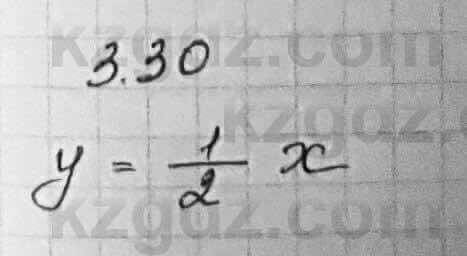 kzgdz.com
3.30
kzgdz.com
y = 1/2 x
kzgdz.com